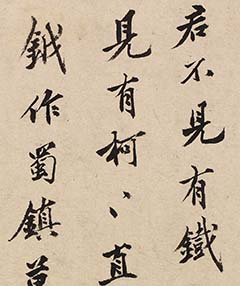 君不見有鐵
見有柯丶直
鉞作蜀鎮